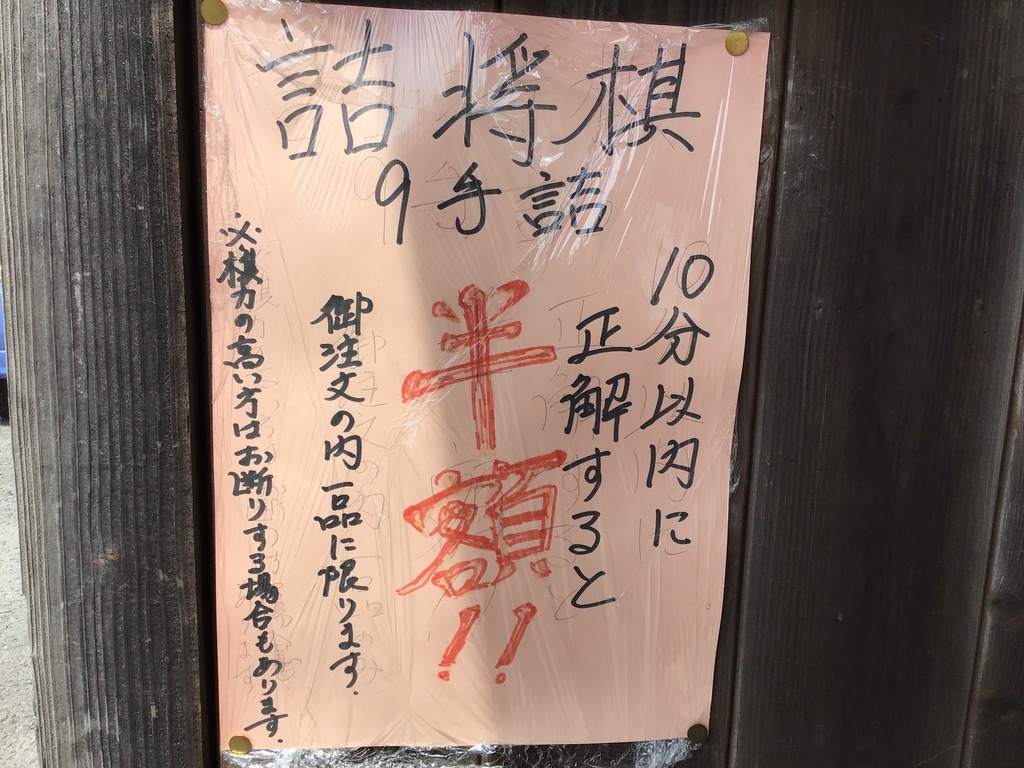 詰将棋
9手詰
10分以内に
正解すると
半額!!
御注文の内一品に限ります.
※棋力の高い方はお断りする場合もあります.